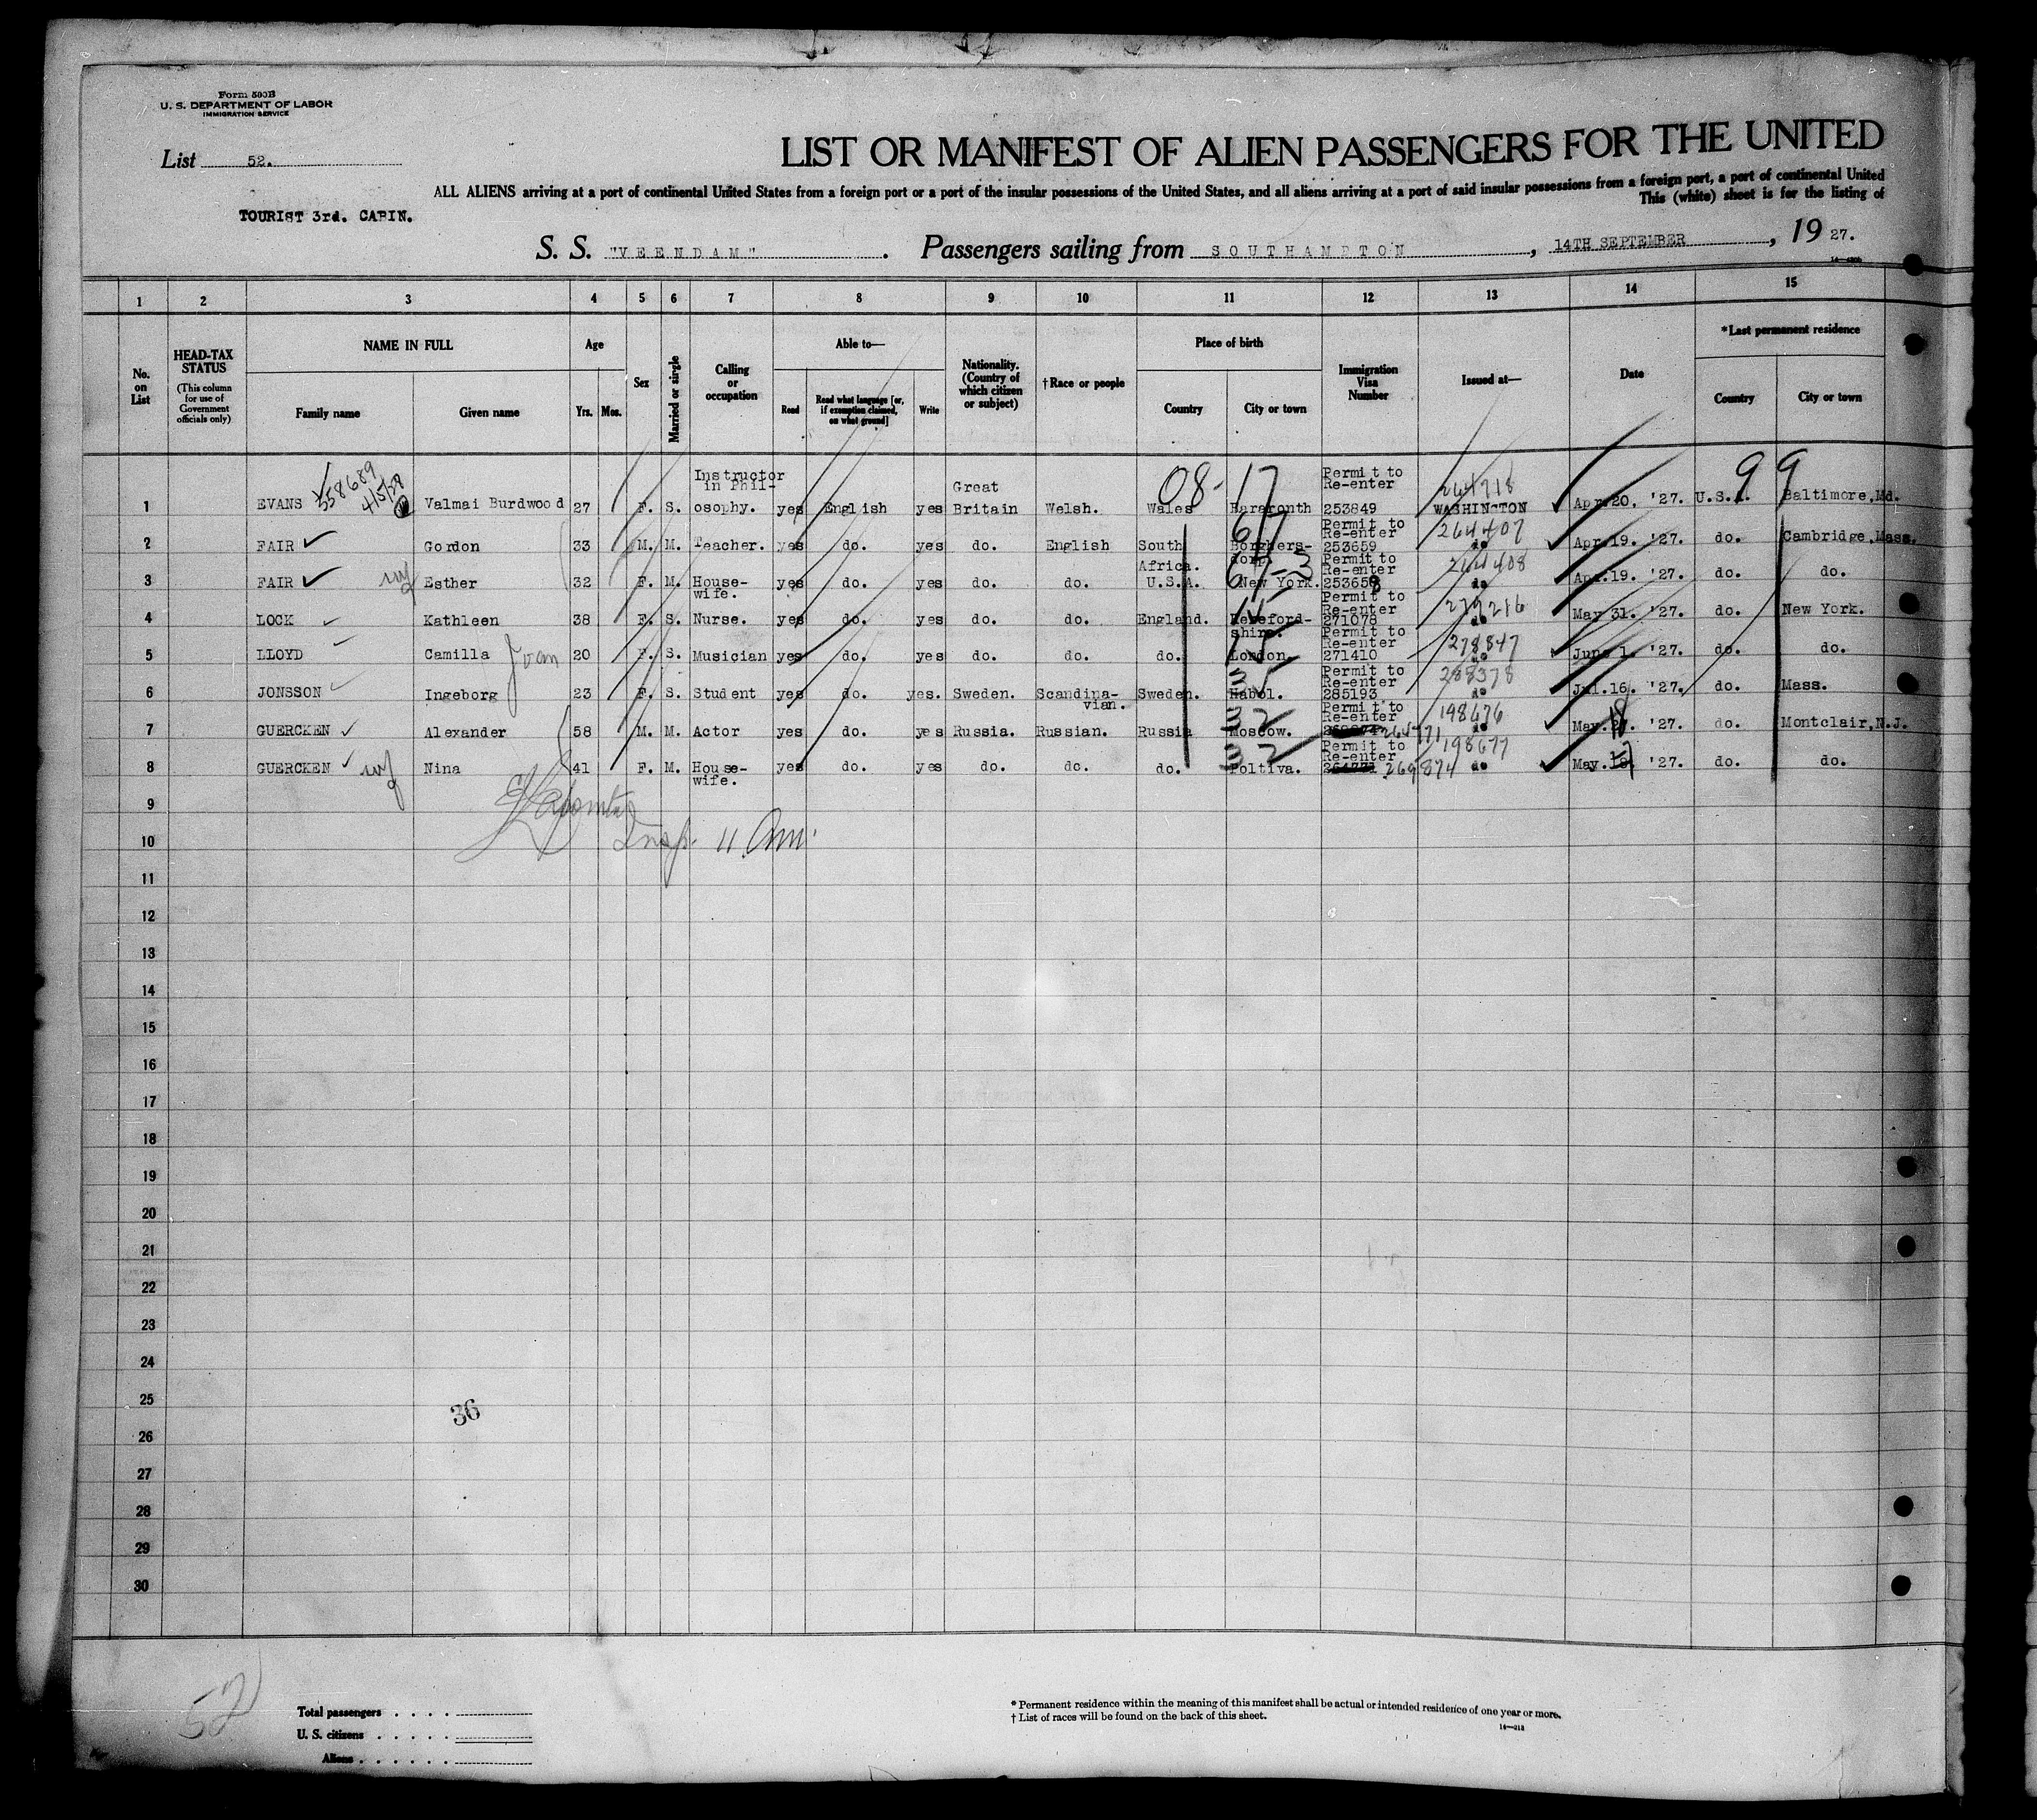 Form 500B
U. S. DEPARTMENT OF LABOR
IMMIGRATION SERVICE
List 52.
LIST OR MANIFEST OF ALIEN PASSENGERS FOR THE UNITED
ALL ALIENS arriving at a port of continental United States from a foreign port or a port of the insular possessions of the United States, and all aliens arriving at a port of said insular possessions from a foreign port, a port of continental United
This (white) sheet is for the listing of
TOURIST 3rd. CABIN.
S. S. "VEENDAM". Passengers sailing from SOUTHAMPTON, 14TH SEPTEMBER, 19 27.
1 2 3 4 5 6 7 8 9 10 11 12 13 14 15
No. on List
HEAD-TAX STATUS (This column for use of Government officials only)
NAME IN FULL
Family name Given name
Age
Yrs. Mos.
Sex
Married or single
Calling or occupation
Able to—
Read Read what language [or, if exemption claimed, on what ground] Write
Nationality. (Country of which citizen or subject)
†Race or people
Place of birth
Country City or town
Immigration Visa Number
Issued at—
Date
*Last permanent residence
Country City or town
1 EVANS 358689 4/5/28 Valmai Burdwood 27 F. S. Instructor in Phil-osophy. yes English yes Great Britain Welsh. Wales 08-17 Permit to Re-enter 253849 264718 WASHINGTON Apr.20. '27. U.S.A. 99 Baltimore,Md.
2 FAIR Gordon 33 M. M. Teacher. yes do. yes do. English South Africa. 67 Permit to Re-enter 253659 264407 do Apr.19. '27. do. Cambridge,Mass.
3 FAIR wf Esther 32 F. M. House-wife. yes do. yes do. do. U.S.A. New York. 67-3 Permit to Re-enter 253658 264408 do Apr.19. '27. do. do.
4 LOCK Kathleen 38 F. S. Nurse. yes do. yes do. do. England. Hereford-shire. Permit to Re-enter 271078 279216 do May 31. '27. do. New York.
5 LLOYD Camilla Joan 20 F. S. Musician yes do. yes do. do. do. London. Permit to Re-enter 271410 278847 do June 1. '27. do. do.
6 JONSSON Ingeborg 23 F. S. Student yes do. yes. Sweden. Scandina-vian. Sweden. Habol. Permit to Re-enter 285193 288378 do Jul.16. '27. do. Mass.
7 GUERCKEN Alexander 58 M. M. Actor yes do. yes Russia. Russian. Russia Moscow. 32 Permit to Re-enter 264771 198676 do May. 18 '27. do. Montclair,N.J.
8 GUERCKEN wf Nina 41 F. M. House-wife. yes do. yes do. do. do. Poltiva. 32 Permit to Re-enter 269874 198677 do May. 17 '27. do. do.
9
10 Insp. 11 Am.
11
12
13
14
15
16
17
18
19
20
21
22
23
24
25
36
26
27
28
29
30
52
Total passengers . . . .
U. S. citizens . . . . .
Aliens . . . . . .
* Permanent residence within the meaning of this manifest shall be actual or intended residence of one year or more.
† List of races will be found on the back of this sheet.
14—213